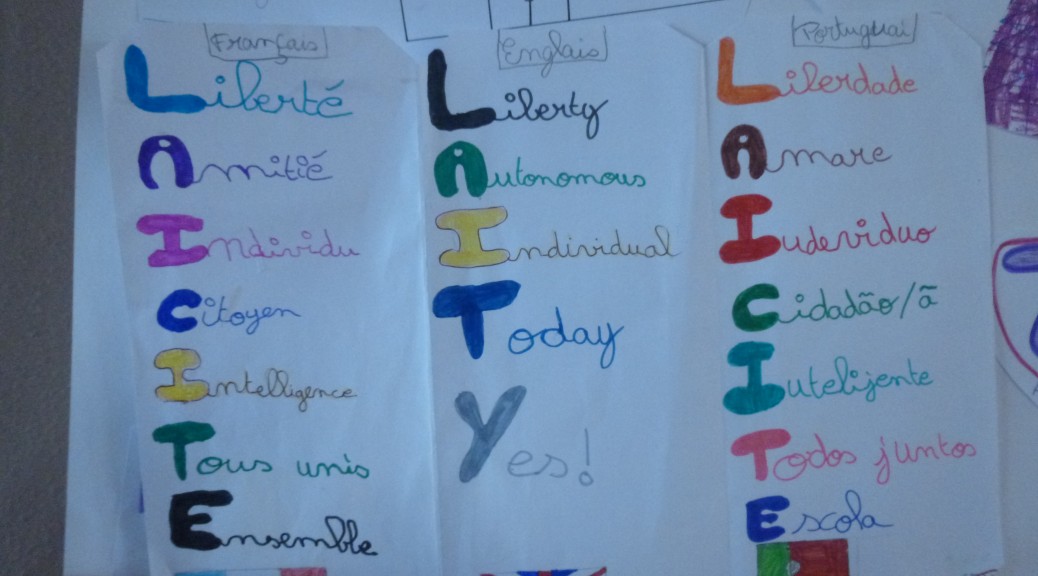 Français
Liberté
Amitié
Individu
Citoyen
Intelligence
Tous unis
Ensemble
Englais
Liberty
Autonomous
Individual
Today
Yes!
Portuguai
Liberdade
Amare
Iudeviduo
Cidadão/ã
Iutelijente
Todos juntos
Escola